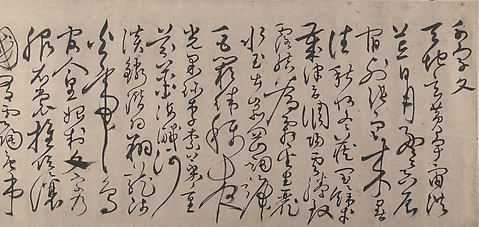 千字文
天地玄黃宇宙洪
荒日月盈昃辰
宿列張寒來暑
往秋收冬藏閏餘
成歲律呂調陽雲騰致
雨露結為霜金生麗
水玉出崑岡劍號
巨闕珠稱夜
光果珍李柰菜重
芥薑海鹹河
淡鱗潛羽翔龍師
火帝鳥
官人皇始制文字乃
服衣裳推位讓
國有虞陶唐弔